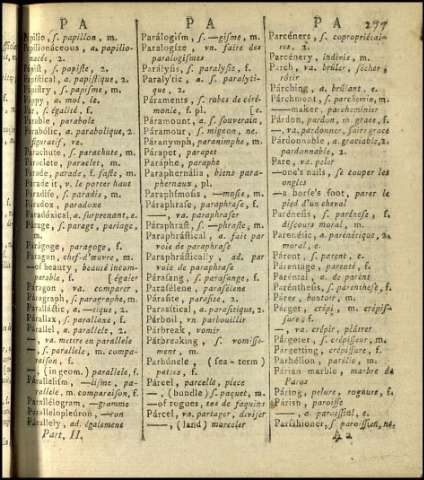 P A
P A
P A 297
Papílio, ſ. papillon, m.
Papilionáceous, a. papilio-
nacée, 2.
ſ. papiſte, 2.
a. papiſtique, 2.
ſ. papiſme, m.
Pappy, a. mol, le.
Par, ſ. égalité, f.
Parable, parabole
Parabólic, a. parabolique, 2.
figuratif, va.
Párachute, ſ. parachute, m.
Páraclete, paraclet, m.
Paráde, parade, f. faſte, m.
Paráde it, v. le porter haut
Páradiſe, ſ. paradis, m.
Páradox, paradoxe
Paradóxical, a. ſurprenant, e.
ſ. parage, pariage,
m.
Páragoge, paragoge, f.
Páragon, chef-d'œuvre, m.
—of beauty, beauté incom-
parable, f. [égaler
Páragon, va. comparer,
Páragraph, ſ. paragraphe, m.
Paralláctic, a. —tique, 2.
Párallax, ſ. parallaxe, f.
Párallel, a. parallele, 2.
—, va. mettre en parallele
—, ſ. parallele, m. compa-
raiſon, f.
—, (in geom.) parallele, f.
Párallelíſm, —iſme, pa-
rallele, m. comparaiſon, f.
Parallélogram, —gramme
Parallelopípedon,
ad. également
Part. II.
Parálogiſm, ſ. —giſme, m.
Paralogíze, vn. faire des
paralogiſmes
Parálysis, ſ. paralyſie, f.
Paralýtic, a. ſ. paralyti-
que, 2.
Páraments, ſ. robes de céré-
monie, f. pl. [e.
Páramount, a. ſ. ſouverain,
Páramour, ſ. mignon, ne.
Páranymph, paranimphe, m.
Párapet, parapet
Páraphe, paraphe
Paraphernália, biens para-
phernaux, pl.
Paraphimoſis, —moſe, m.
Páraphraſe, paraphraſe, f.
—, va. paraphraſer
Páraphraſt, ſ. —phraſte, m.
Paraphráſtical, a. fait par
voie de paraphraſe
Paraphráſtically, ad. par
voie de paraphraſe
ſ. paraſange, f.
Paraſélene, paraſelène
Páraſite, paraſite, 2.
Paraſítical, a. paraſitique, 2.
Párboil, vn. parbouillir
Párbreak, vomir
Párbreaking, ſ. vomiſſe-
ment, m.
(ſea-term)
f.
Párcel, parcelle, piece
—, (bundle) ſ. paquet, m.
—of rogues, tas de faquins
Párcel, va. partager, diviſer
—, (land) morceler
Parcéners, ſ. coproprietai-
res, 2.
Parcénery, indivis, m.
Parch, va. brûler, ſécher,
rôtir
Párching, a. brûlant, e.
Párchment, ſ. parchemin, m.
—maker, parcheminier
Párdon, pardon, m. grace, f.
—, va. pardonner, faire grace
Párdonable, a. graciable, 2.
pardonnable, 2.
Pare, va. peler
—one's nails, ſe couper les
ongles
—a horſe's foot, parer le
pied d'un cheval
Parénesis, ſ. parénèſe, f.
diſcours moral, m.
Parenétic, a. parénétique, 2.
moral, e.
Párent, ſ. parent, e.
Párentage, parenté, f.
Paréntal, a. de parent
Parénthesis, ſ. parentheſe, f.
Parer, boutoir, m.
Párget, crépi, m. crépiſ-
ſure, f.
—, va. crépir, plâtrer
Párgeter, ſ. crépiſſeur, m.
Pargetting, crépiſſure, f.
Parhélion, parélie, m.
Párian marble, marbre de
Paros
Páring, pelure, rognure, f.
Páriſh, paroiſſe
—, a. paroiſſial, e.
Paríſhioner, ſ. paroiſſien, ne.